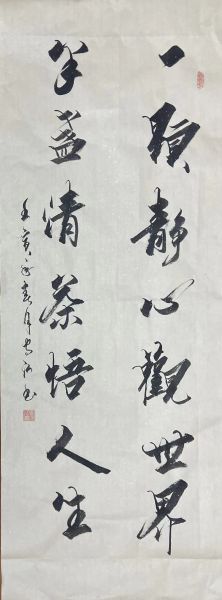 一顆靜心觀世界
半盞清茶悟人生
壬寅年春月